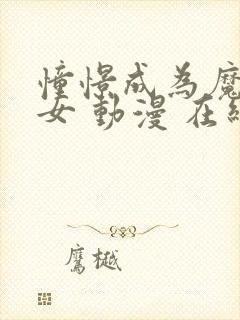 憧憬成為魔
女 動漫 在線
鷹樾